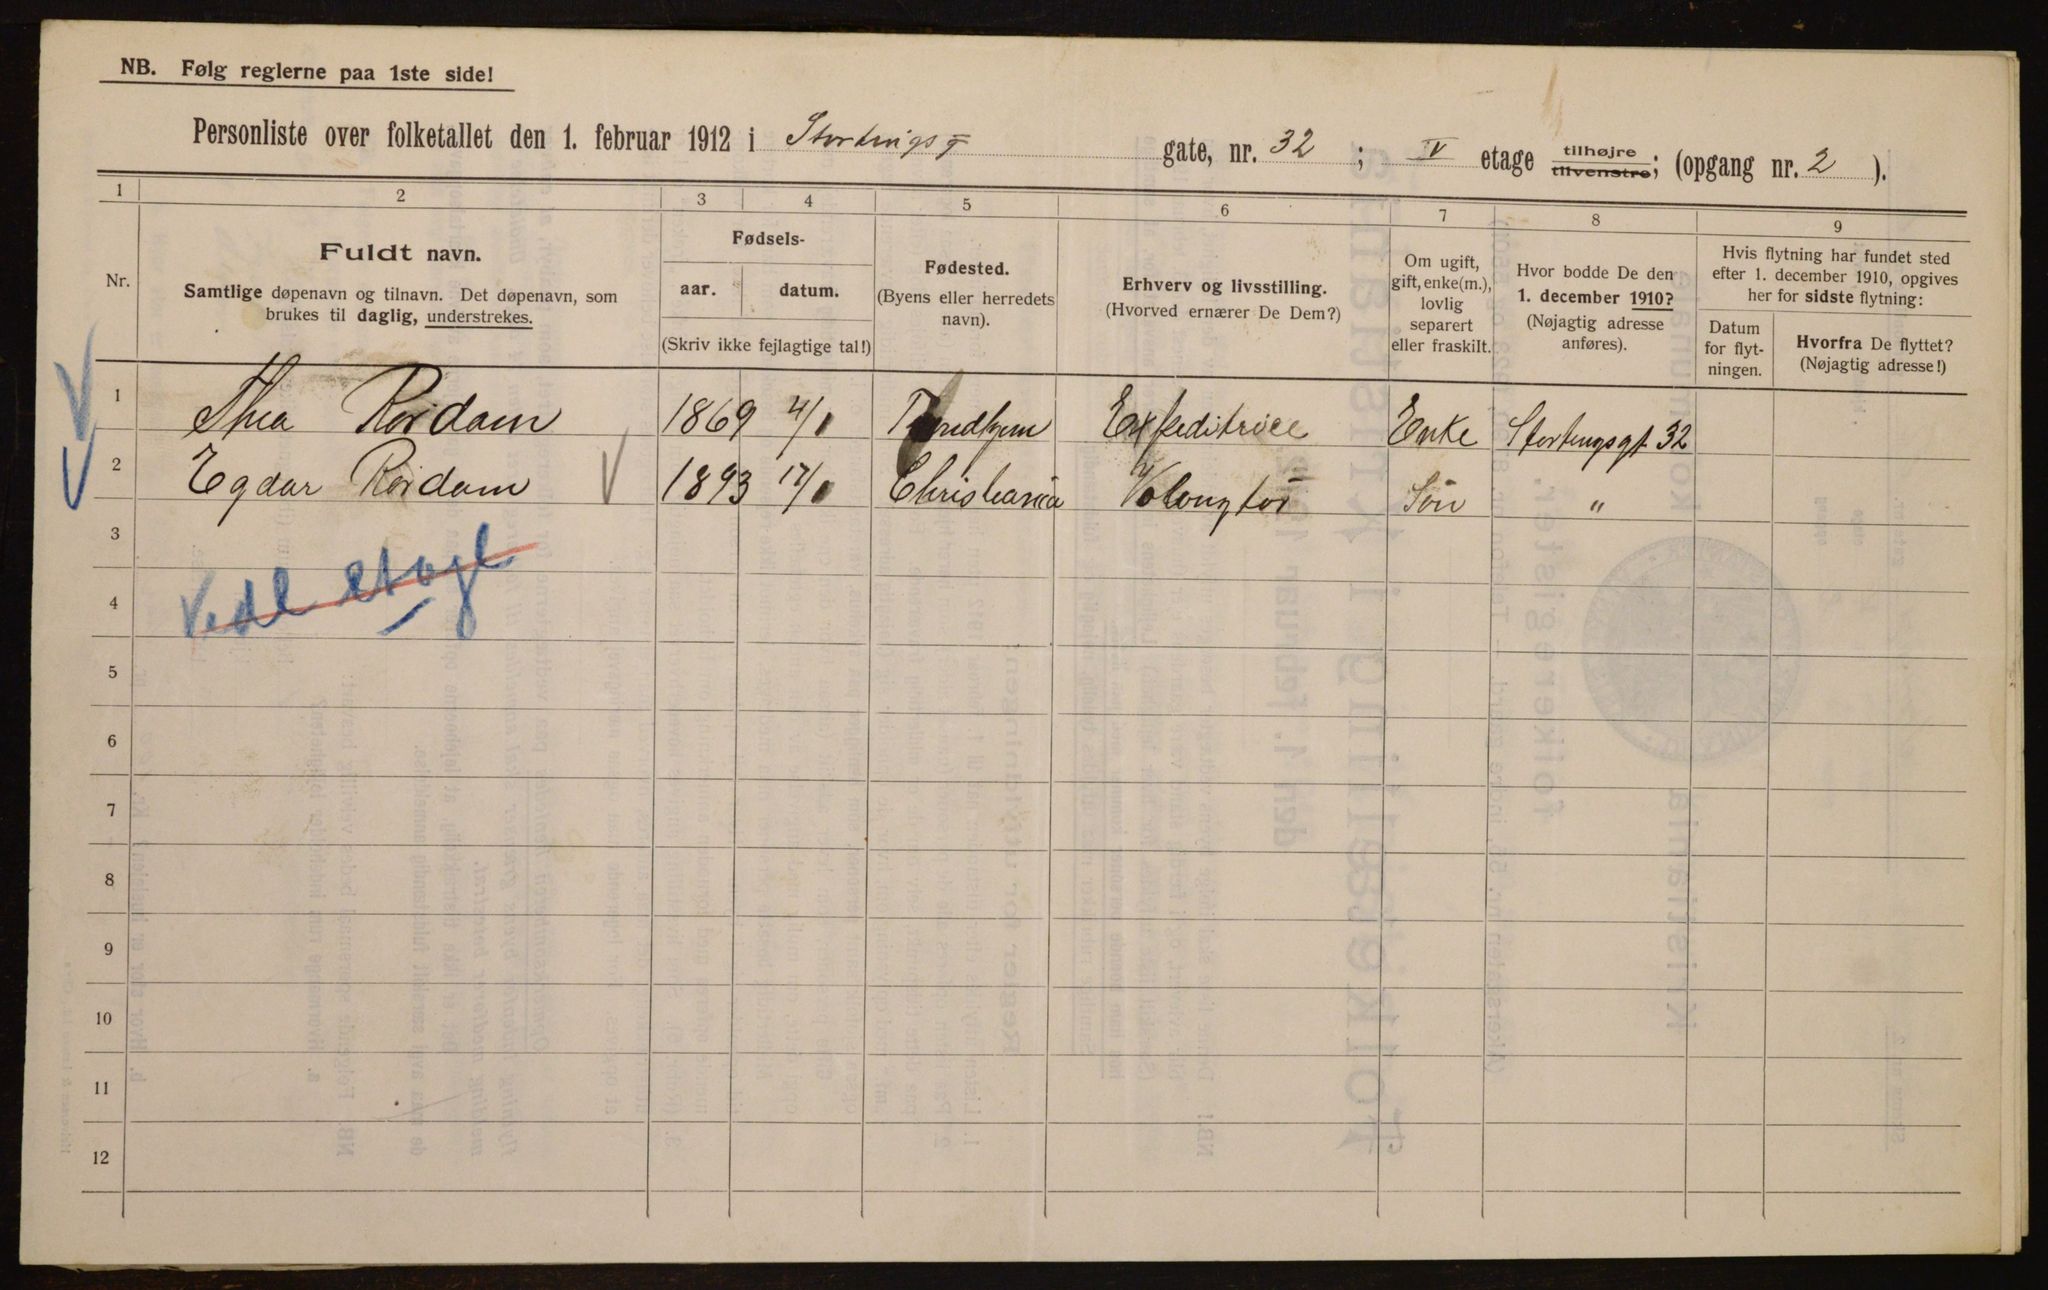 NB. Følg reglerne paa 1ste side!
Personliste over folketallet den 1. februar 1912 i Stortingsg gate, nr. 32 ; V etage tilhøjre tilvenstre; (opgang nr. 2 ).
1 2 3 4 5 6 7 8 9
Nr.
Fuldt navn.
Samtlige døpenavn og tilnavn. Det døpenavn, som
brukes til daglig, understrekes.
Fødsels-
aar. datum.
(Skriv ikke fejlagtige tal!)
Fødested.
(Byens eller herredets
navn).
Erhverv og livsstilling.
(Hvorved ernærer De Dem?)
Om ugift,
gift, enke(m.),
lovlig
separert
eller fraskilt.
Hvor bodde De den
1. december 1910?
(Nøjagtig adresse
anføres).
Hvis flytning har fundet sted
efter 1. december 1910, opgives
her for sidste flytning:
Datum
for flyt-
ningen.
Hvorfra De flyttet?
(Nøjagtig adresse!)
1 Thea Rordam 1869 4/1 Trondhjem Expeditrice Enke Stortingsgt 32
2 Egdar Rordam 1893 17/1 Christiania Volongtør Sön "
3
Vedl etage
4
5
6
7
8
9
10
11
12